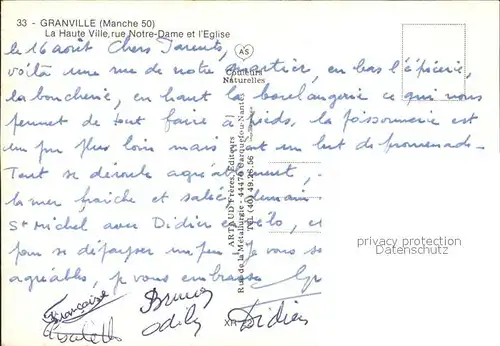 33 - GRANVILLE (Manche 50)
La Haute Ville, rue Notre-Dame et l'Eglise
AS
Couleurs
Naturelles
le 16 août Chers Parents,
voilà une rue de notre quartier, en bas l'épicerie,
la boucherie, en haut la boulangerie ce qui nous
permet de tout faire à pieds, la poissonnerie est
un peu plus loin mais est un but de promenade.
Tout se déroule agréablement,
la mer fraîche et salée, demain
St Michel avec Didier vélo,
pour se dépayser un peu
agréables, je vous embrasse
Françoise Bruno
Odile Didier
ARTAUD Frères, Editeurs
Rue de la Métallurgie - 44470 Carquefou-Nantes
Tél. (40) 49.26.56
privacy protection
Datenschutz